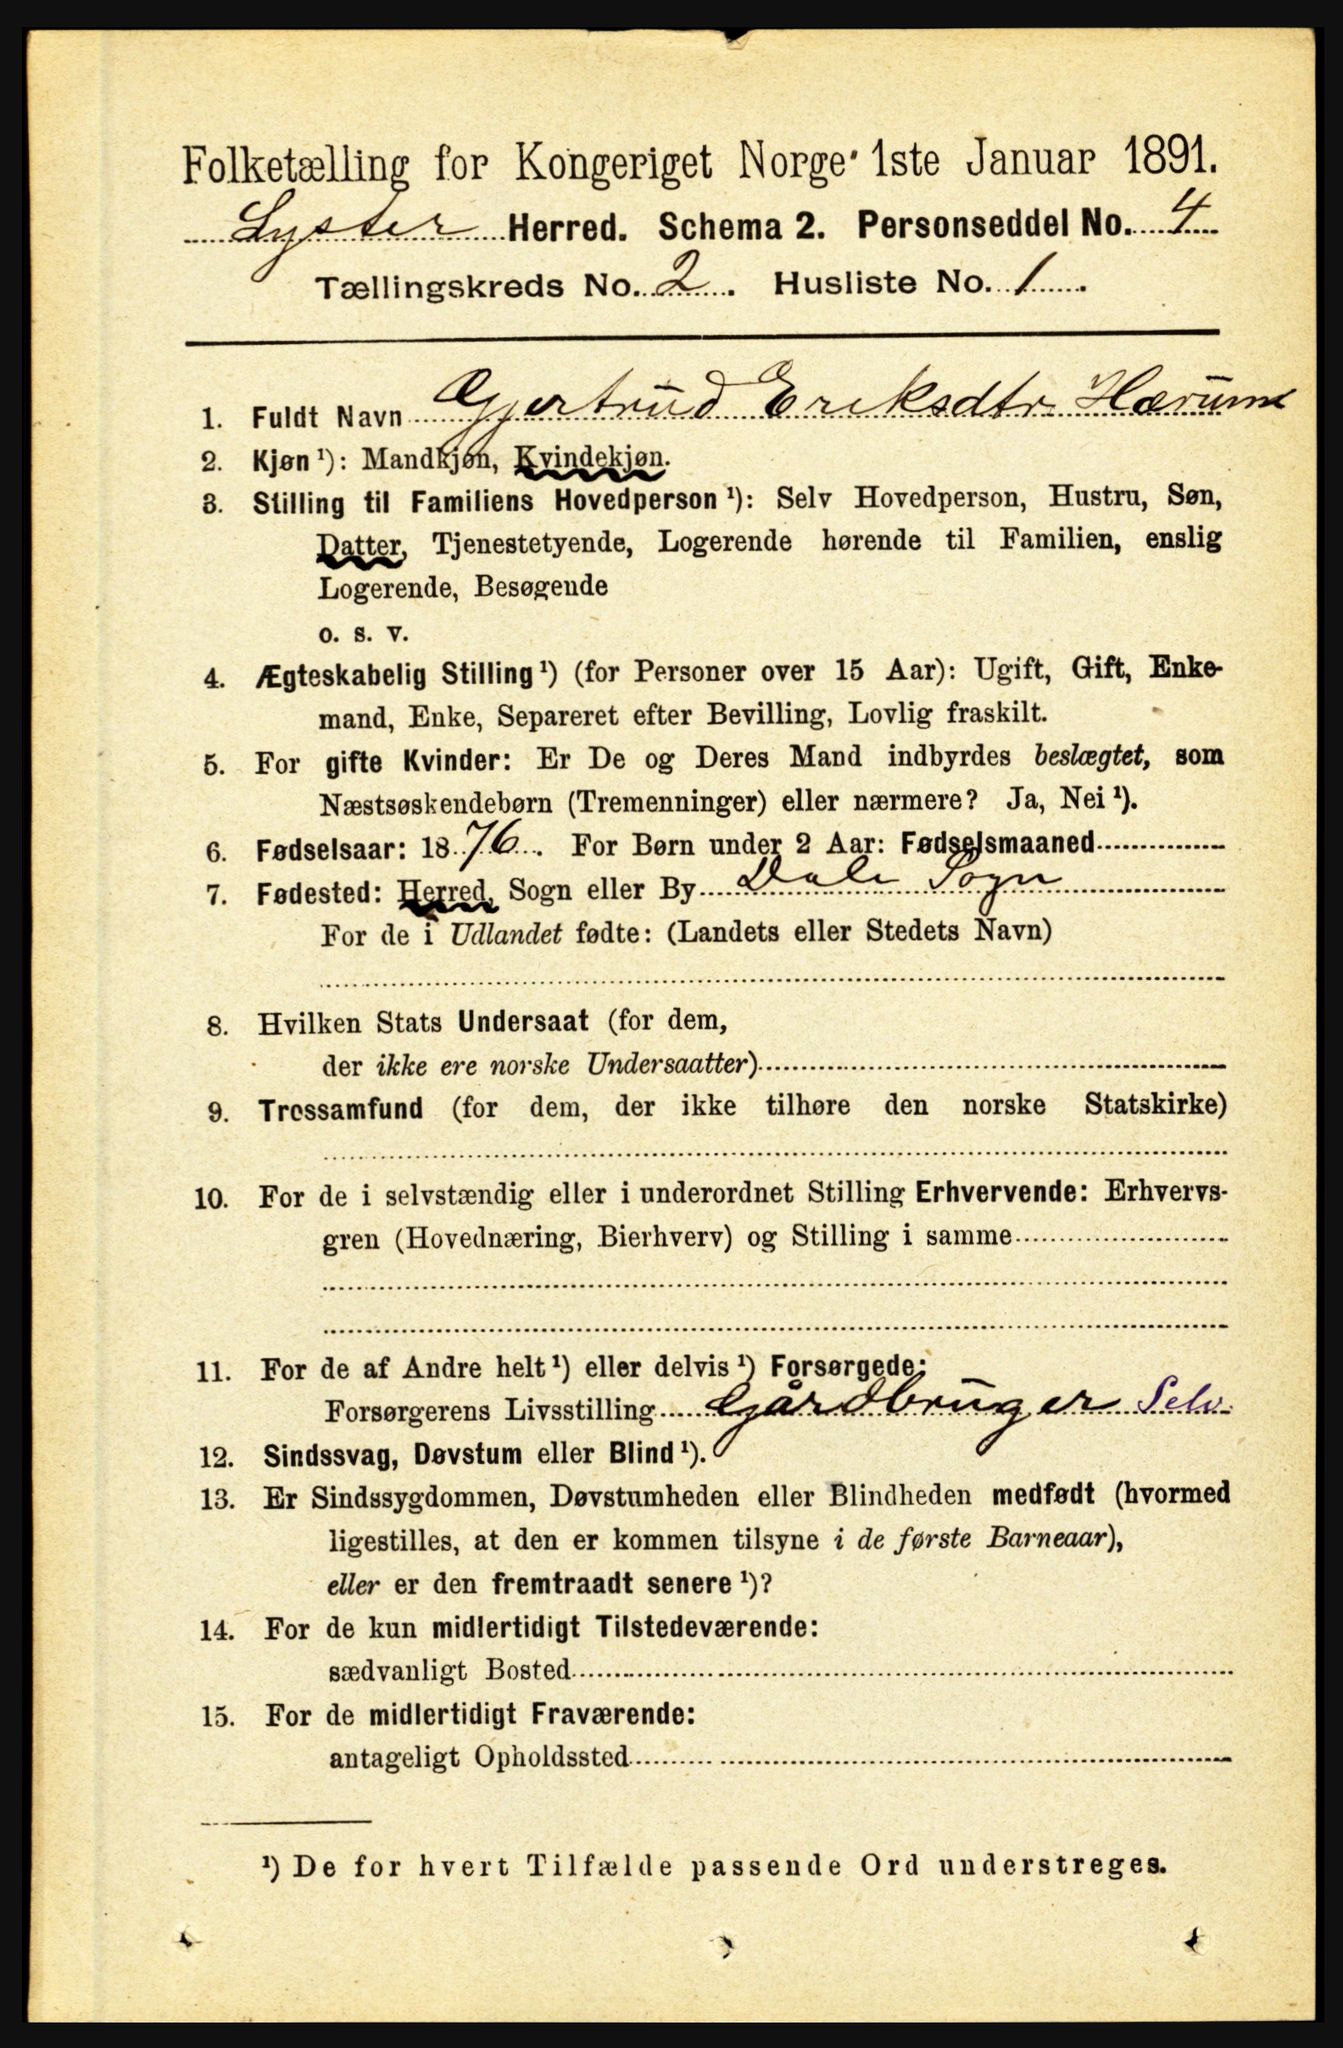 Folketælling for Kongeriget Norge 1ste Januar 1891.
Lyster Herred. Schema 2. Personseddel No. 4
Tællingskreds No. 2. Husliste No. 1.
1. Fuldt Navn Gjertrud Eriksdtr. Hærum
2. Kjøn ¹): Mandkjøn, Kvindekjøn.
3. Stilling til Familiens Hovedperson ¹): Selv Hovedperson, Hustru, Søn,
Datter, Tjenestetyende, Logerende hørende til Familien, enslig
Logerende, Besøgende
o. s. v.
4. Ægteskabelig Stilling ¹) (for Personer over 15 Aar): Ugift, Gift, Enke-
mand, Enke, Separeret efter Bevilling, Lovlig fraskilt.
5. For gifte Kvinder: Er De og Deres Mand indbyrdes beslægtet, som
Næstsøskendebørn (Tremenninger) eller nærmere? Ja, Nei ¹).
6. Fødselsaar: 1876. For Børn under 2 Aar: Fødselsmaaned
7. Fødested: Herred, Sogn eller By Dale Sogn
For de i Udlandet fødte: (Landets eller Stedets Navn)
8. Hvilken Stats Undersaat (for dem,
der ikke ere norske Undersaatter)
9. Trossamfund (for dem, der ikke tilhøre den norske Statskirke)
10. For de i selvstændig eller i underordnet Stilling Erhvervende: Erhvervs-
gren (Hovednæring, Bierhverv) og Stilling i samme
11. For de af Andre helt ¹) eller delvis ¹) Forsørgede:
Forsørgerens Livsstilling Gårdbruger Selv.
12. Sindssvag, Døvstum eller Blind ¹).
13. Er Sindssygdommen, Døvstumheden eller Blindheden medfødt (hvormed
ligestilles, at den er kommen tilsyne i de første Barneaar),
eller er den fremtraadt senere ¹)?
14. For de kun midlertidigt Tilstedeværende:
sædvanligt Bosted
15. For de midlertidigt Fraværende:
antageligt Opholdssted
¹) De for hvert Tilfælde passende Ord understreges.